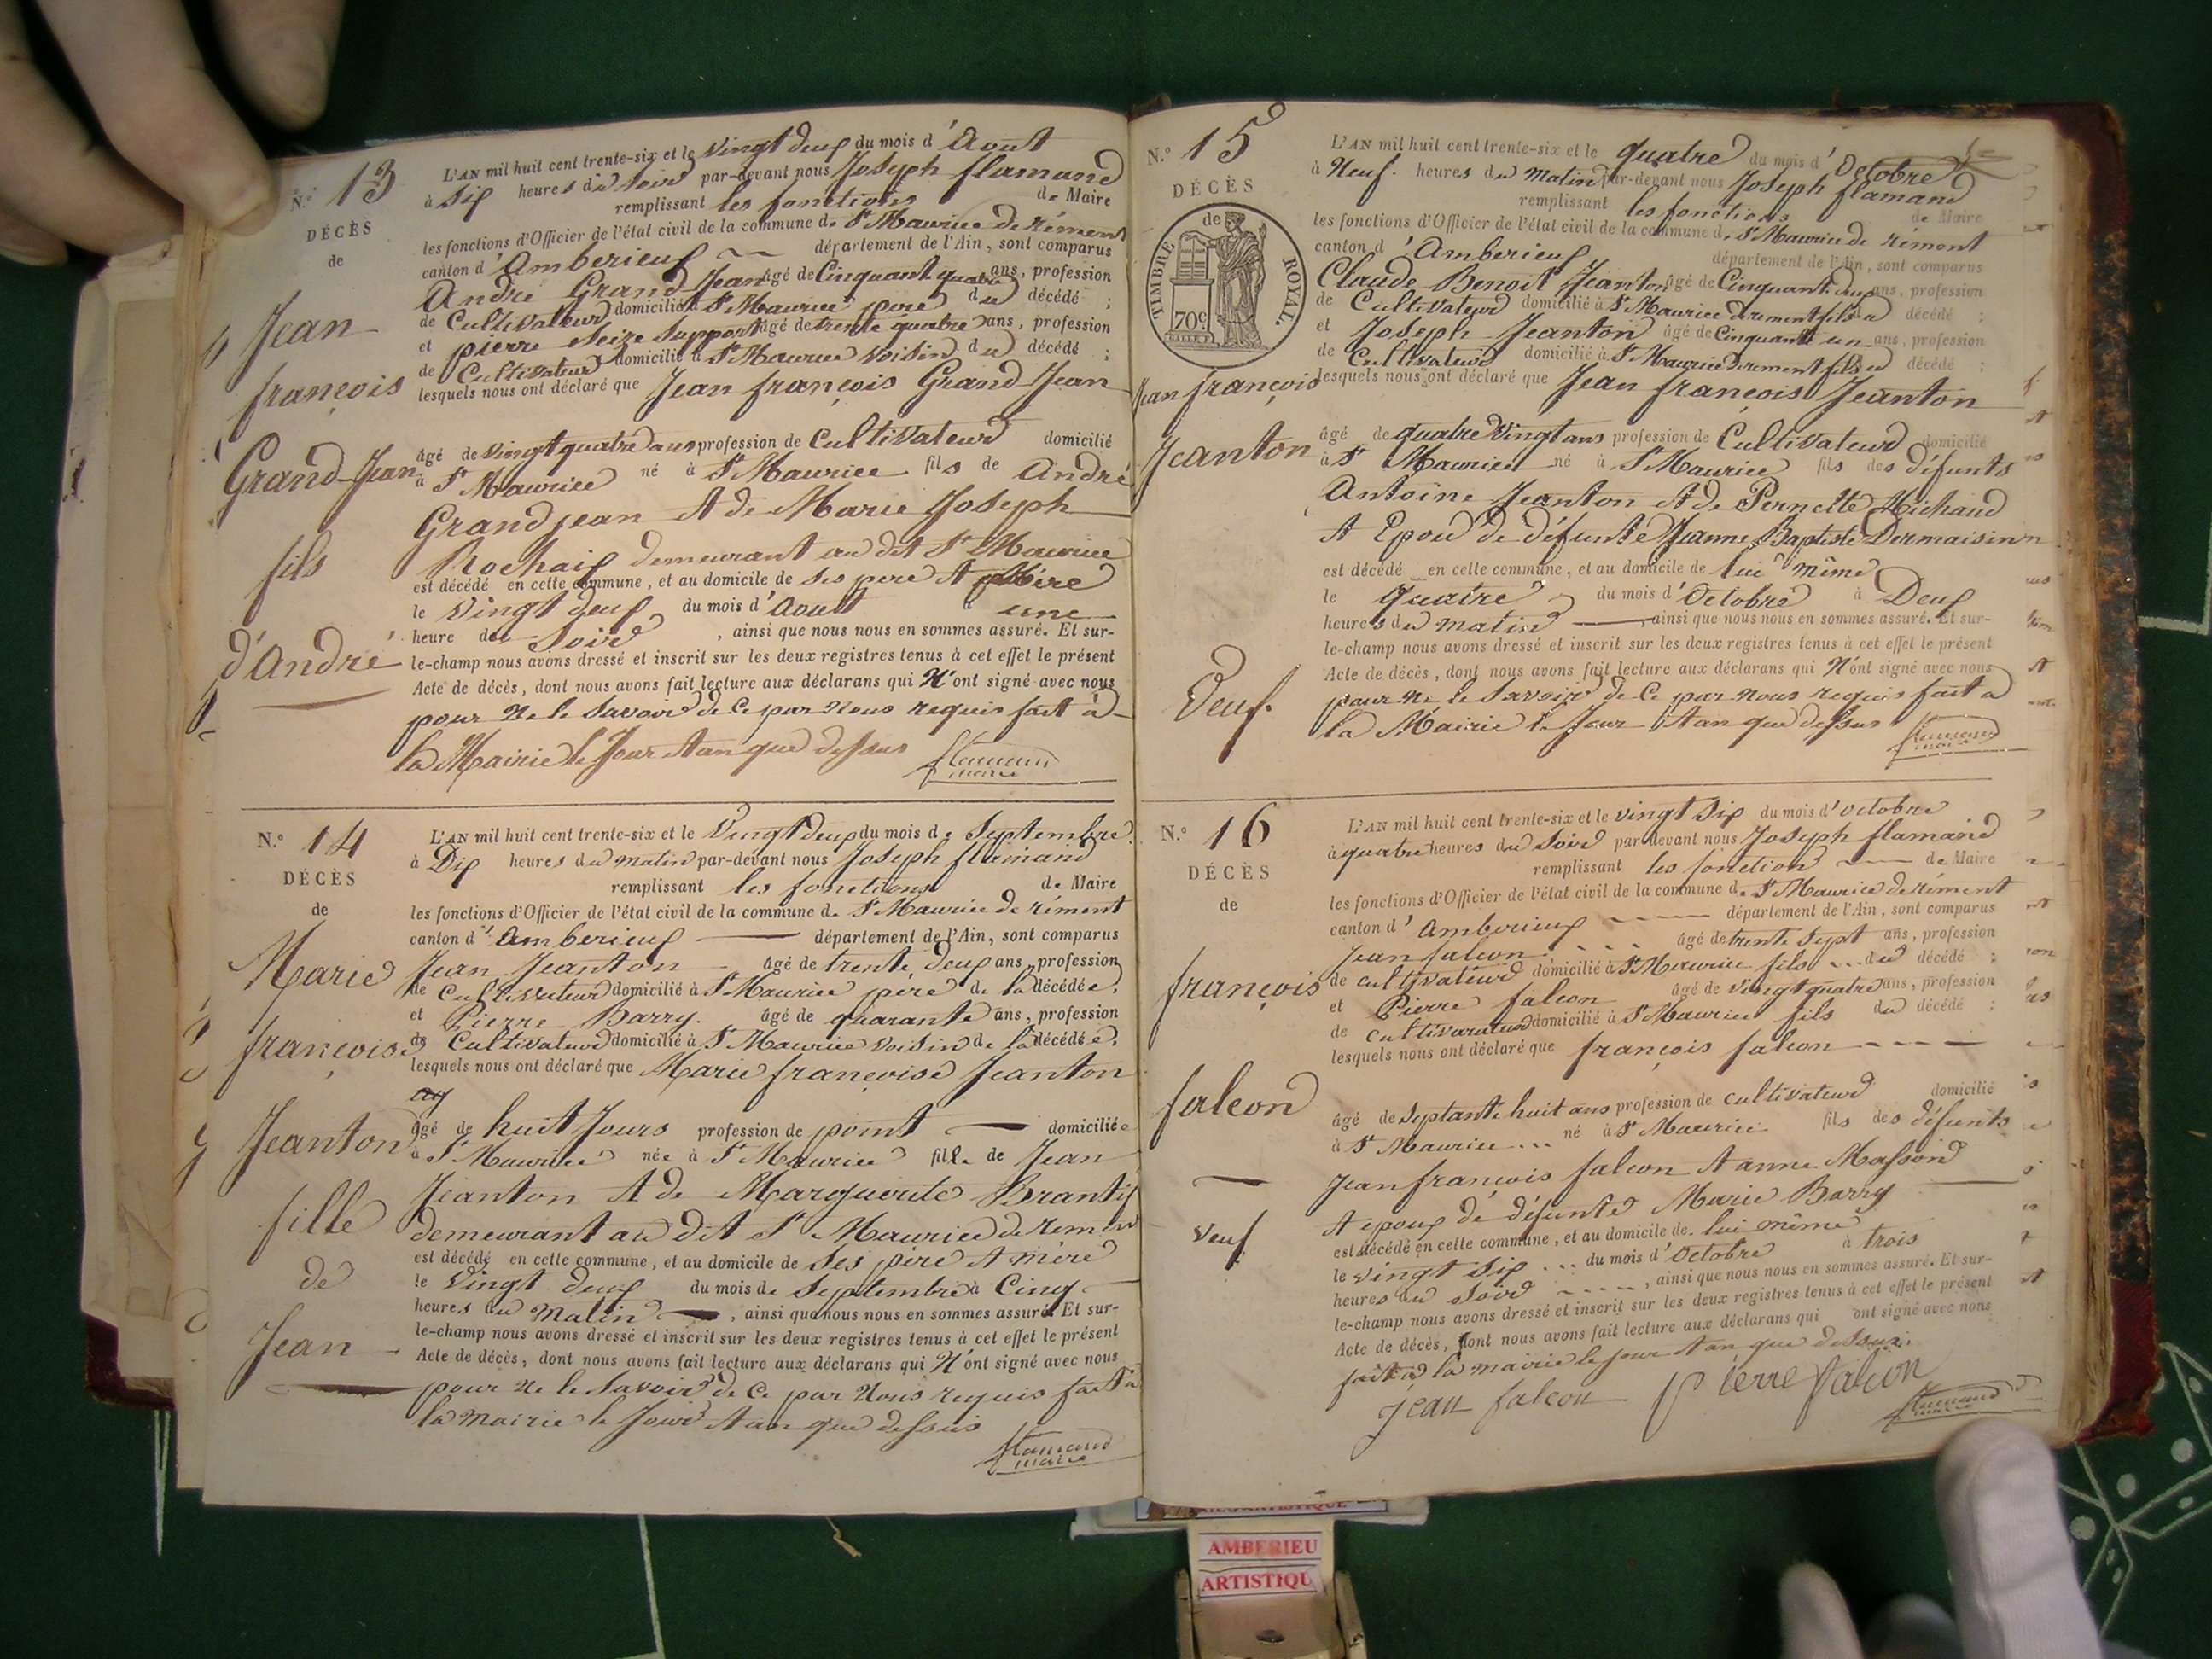 N.º 13
DÉCÈS
de
Jean
françois
Grand-Jean
fils
d'André
L'AN mil huit cent trente-six et le vingt deux du mois d'Aout
à Six heures du soir par-devant nous Joseph flamand
remplissant les fonctions de Maire
les fonctions d'Officier de l'état civil de la commune de St Maurice de rément
canton d'Amberieux département de l'Ain, sont comparus
André Grand Jean âgé de Cinquant quatre ans, profession
de Cultivateur domicilié à St Maurice pere du décédé ;
et pierre Seize Support âgé de trente quatre ans, profession
de Cultivateur domicilié à St Maurice Voisin du décédé ;
lesquels nous ont déclaré que Jean françois Grand Jean
âgé de vingt quatre ans profession de Cultivateur domicilié
à St Maurice né à St Maurice fils de André
Grandjean et de Marie Joseph
Rochaix demeurant au dit St Maurice
est décédé en cette commune, et au domicile de ses pere et Mère
le Vingt deux du mois d'Aout à une
heure du Soir, ainsi que nous nous en sommes assuré. Et sur-
le-champ nous avons dressé et inscrit sur les deux registres tenus à cet effet le présent
Acte de décès, dont nous avons fait lecture aux déclarans qui N'ont signé avec nous
pour Ne le Savoir de Ce par Nous requis fait à
la Mairie le Jour et an que dessus
flamand
maire
N.º 14
DÉCÈS
de
Marie
françoise
Jeanton
fille
de
Jean
L'AN mil huit cent trente-six et le Vingt deux du mois de Septembre
à Dix heures du matin par-devant nous Joseph flamand
remplissant les fonctions de Maire
les fonctions d'Officier de l'état civil de la commune de St Maurice de rément
canton d'Amberieux département de l'Ain, sont comparus
Jean Jeanton âgé de trente deux ans, profession
de Cultivateur domicilié à St Maurice père de la décédée,
et Pierre Barry. âgé de quarante ans, profession
de Cultivateur domicilié à St Maurice Voisin de la décédée,
lesquels nous ont déclaré que Marie françoise Jeanton
âgé de huit Jours profession de point domiciliée
à St Maurice née à St Maurice fille de Jean
Jeanton et de Marguerite Brantix
demeurant au dit St Maurice de rément
est décédé en cette commune, et au domicile de Ses père et mère
le Vingt deux du mois de Septembre à Cinq
heures du Matin, ainsi que nous nous en sommes assuré. Et sur-
le-champ nous avons dressé et inscrit sur les deux registres tenus à cet effet le présent
Acte de décès, dont nous avons fait lecture aux déclarans qui N'ont signé avec nous
pour Ne le Savoir de Ce par Nous requis fait à
la Mairie le Jour et an que dessus
flamand
maire
N.º 15
DÉCÈS
de
TIMBRE ROYAL.
70c
Jean françois
Jeanton
Veuf.
L'AN mil huit cent trente-six et le quatre du mois d'Octobre
à Neuf. heures du Matin par-devant nous Joseph flamand
remplissant les fonctions de Maire
les fonctions d'Officier de l'état civil de la commune de St Maurice de rément
canton d'Amberieux département de l'Ain, sont comparus
Claude Benoit Jeanton âgé de Cinquant deux ans, profession
de Cultivateur domicilié à St Maurice de rement fils du décédé ;
et Joseph Jeanton âgé de Cinquante un ans, profession
de Cultivateur domicilié à St Maurice de rement fils du décédé ;
lesquels nous ont déclaré que Jean françois Jeanton
âgé de quatre Vingt ans profession de Cultivateur domicilié
à St Maurice né à St Maurice fils des défunts
Antoine Jeanton et de Pernette Michaud
et Epoux de défunte Jeanne Baptiste Dermaisin
est décédé en cette commune, et au domicile de lui même
le Quatre du mois d'Octobre à Deux
heures du matin ainsi que nous nous en sommes assuré. Et sur-
le-champ nous avons dressé et inscrit sur les deux registres tenus à cet effet le présent
Acte de décès, dont nous avons fait lecture aux déclarans qui N'ont signé avec nous
pour Ne le Savoir de Ce par Nous requis fait à
la Mairie le Jour et an que dessus
flamand
maire
N.º 16
DÉCÈS
de
françois
falcon
Veuf
L'AN mil huit cent trente-six et le vingt Six du mois d'Octobre
à quatre heures du Soir par-devant nous Joseph flamand
remplissant les fonction de Maire
les fonctions d'Officier de l'état civil de la commune de St Maurice de rément
canton d'Amberieux département de l'Ain, sont comparus
Jean falcon âgé de trente Sept ans, profession
de cultivateur domicilié à St Maurice fils du décédé ;
et Pierre falcon âgé de vingt quatre ans, profession
de cultivateur domicilié à St Maurice fils du décédé ;
lesquels nous ont déclaré que françois falcon
âgé de Septante huit ans profession de cultivateur domicilié
à St Maurice né à St Maurice fils des défunts
Jean françois falcon et anne Masson
et epoux de défunte Marie Barry
est décédé en cette commune, et au domicile de lui même
le vingt Six du mois d'Octobre à trois
heures du Soir, ainsi que nous nous en sommes assuré. Et sur-
le-champ nous avons dressé et inscrit sur les deux registres tenus à cet effet le présent
Acte de décès, dont nous avons fait lecture aux déclarans qui ont signé avec nous
fait à la mairie le jour et an que dessus.
jean falcon pierre falcon
flamand
maire
AMBERIEU
ARTISTIQU